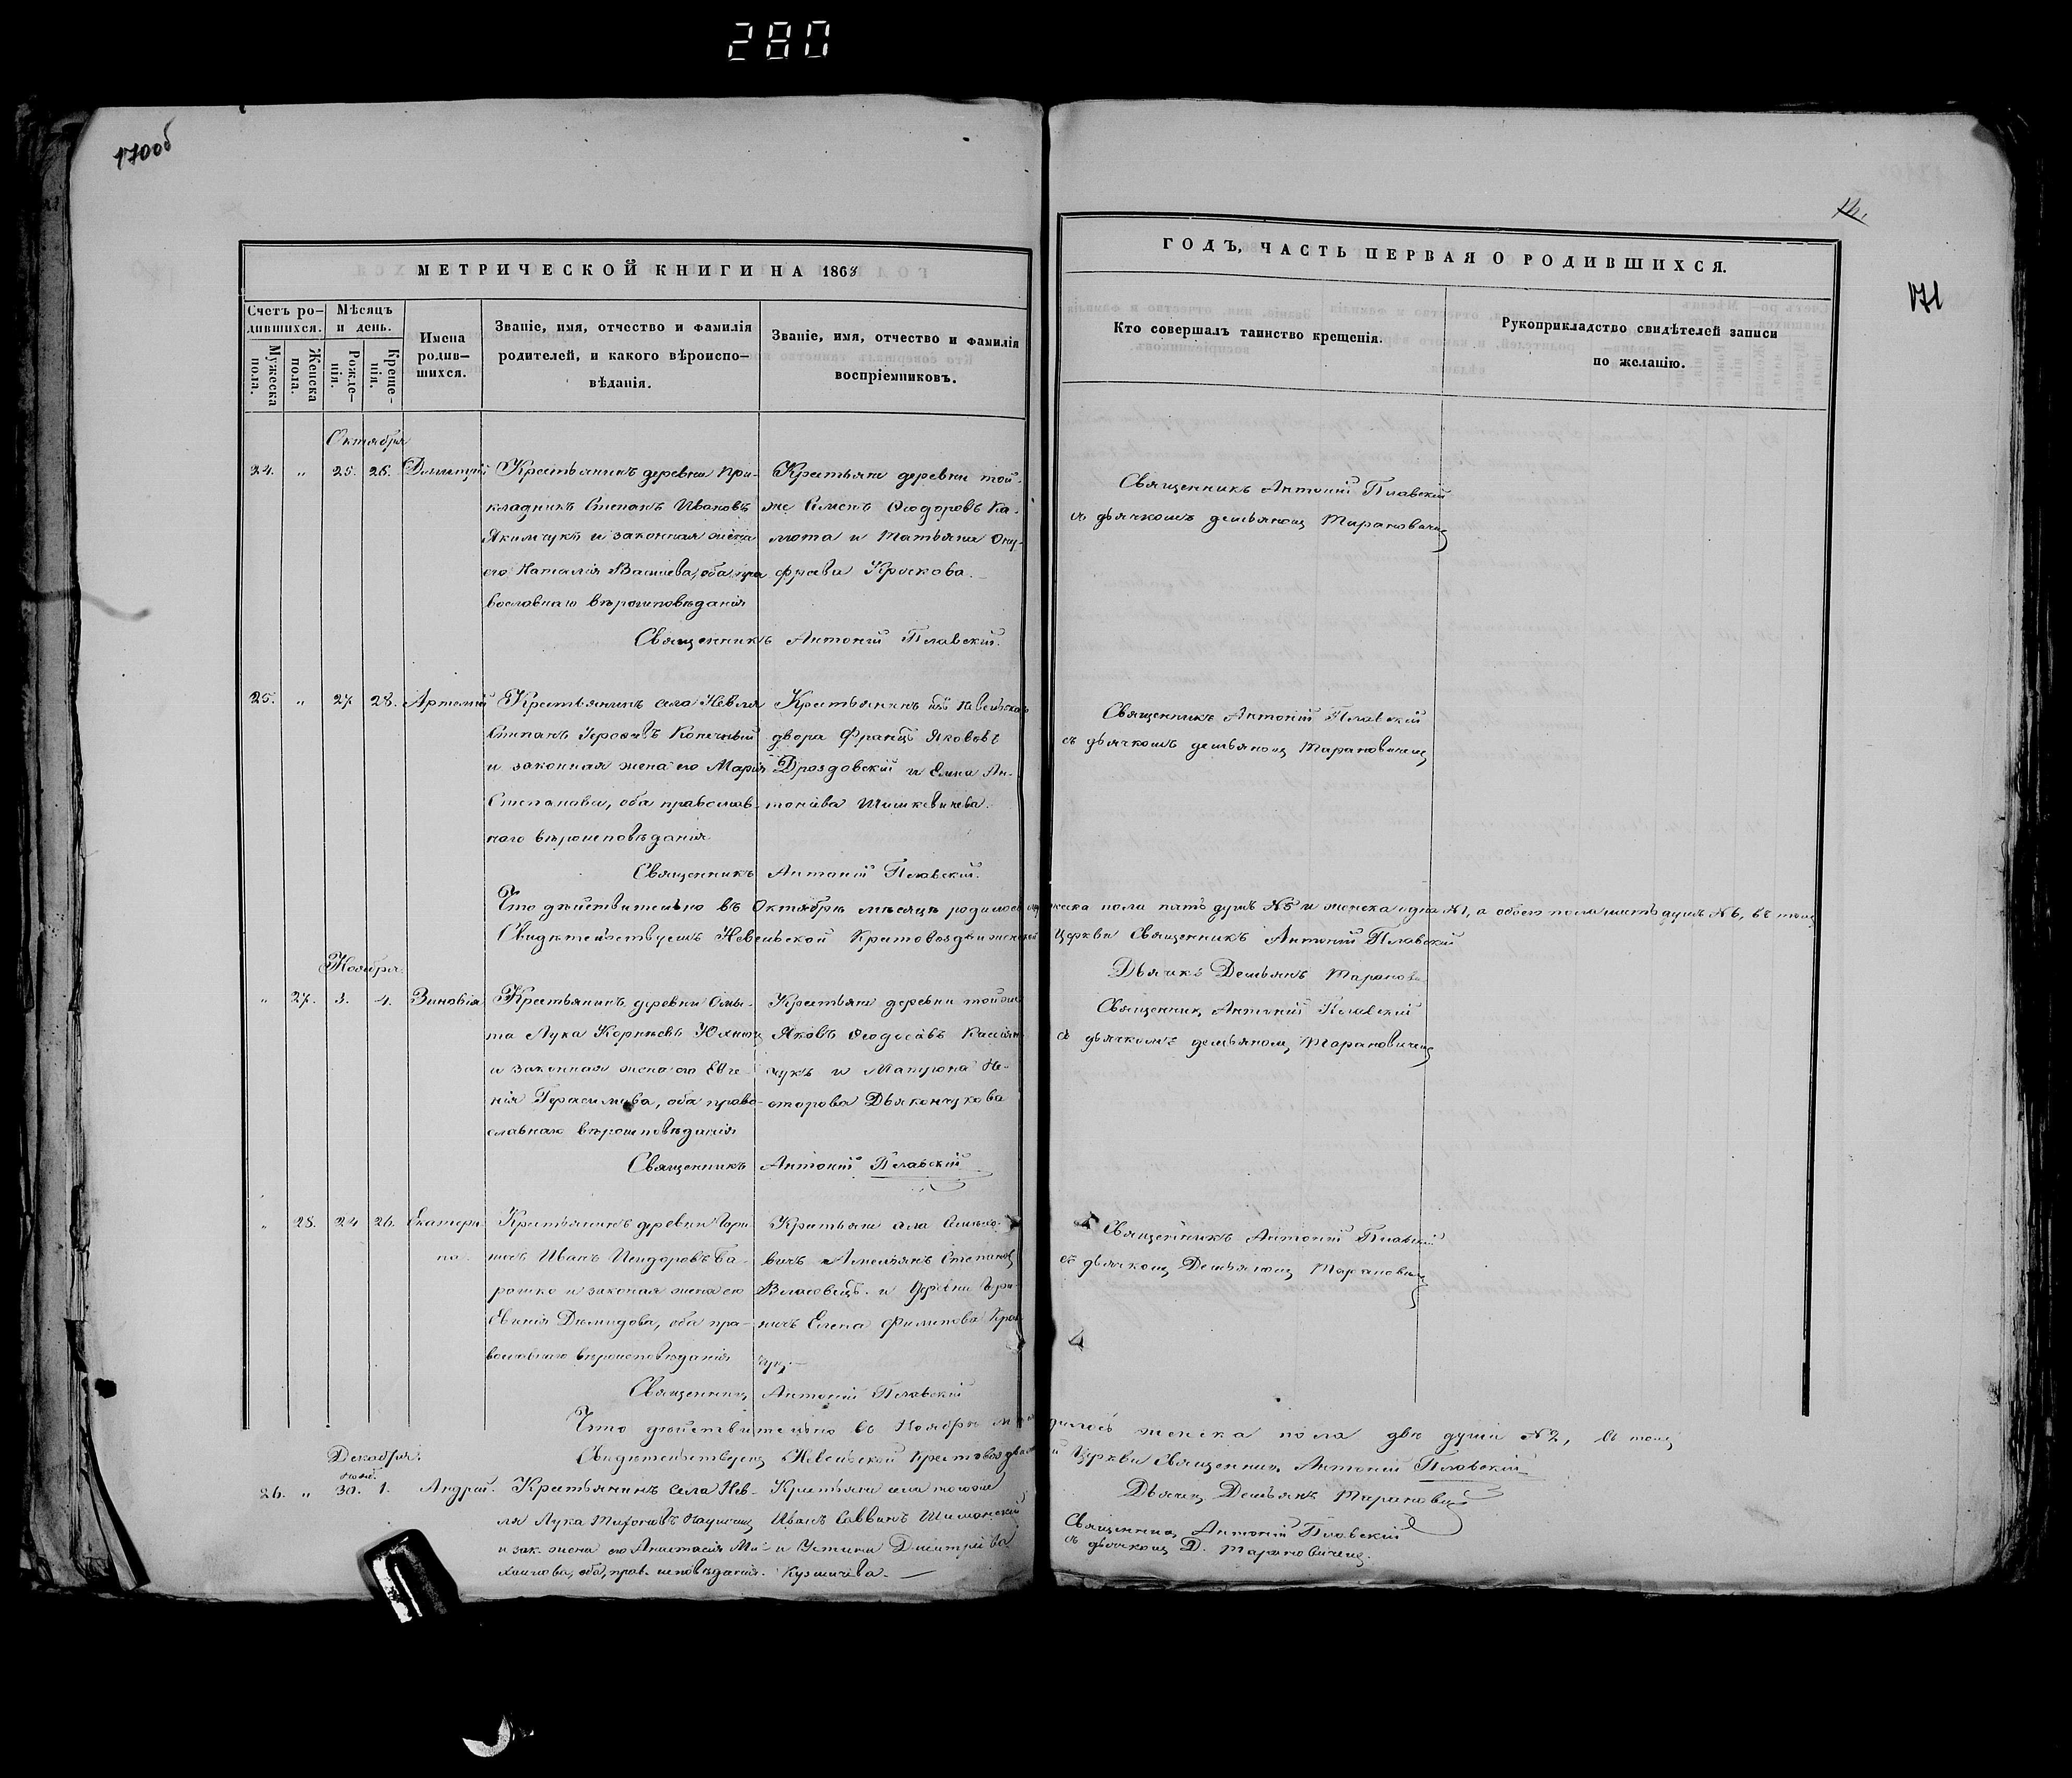 280
170об
14.
171
МЕТРИЧЕСКОЙ КНИГИ НА 1863
ГОДЪ, ЧАСТЬ ПЕРВАЯ О РОДИВШИХСЯ.
Счетъ ро-
дившихся.
Мужеска пола.
Женска пола.
Мѣсяцъ
и день.
Рожде-
нія.
Креще-
нія.
Имена
родив-
шихся.
Званіе, имя, отчество и фамилія
родителей, и какого вѣроиспо-
вѣданія.
Званіе, имя, отчество и фамилія
воспріемниковъ.
Кто совершалъ таинство крещенія.
Рукоприкладство свидѣтелей записи
по желанію.
Октября
24. " 25. 26. Димитрій
Крестьянинъ деревни При-
кладникъ Степанъ Ивановъ
Якимчукъ и законная жена
его Наталія, оба пра
вославнаго вѣроисповѣданія
Крестьяне деревни той
же Семенъ Ѳеодоровъ Ка-
люта и Татьяна Ону-
фріева Крискова.
Священникъ Антоній Плавскій.
Священникъ Антоній Плавскій
съ дьячкомъ Демьяномъ Тарановичемъ
25. " 27. 28. Артемій
Крестьянинъ села Невля
Степанъ
и законная жена его Марія
Степанова, оба православ-
наго вѣроисповѣданія
Крестьянинъ
двора Францъ Яковъ
Дроздовскій и Елена Ан-
тоніева Шишкевичева.
Священникъ Антоній Плавскій.
Священникъ Антоній Плавскій
съ дьячкомъ Демьяномъ Тарановичемъ
Что дѣйствительно въ Октябрѣ мѣсяцѣ родилось мужеска пола пять душъ №5 и женска одна №1, а обоего пола шесть душъ №6, въ томъ
Свидѣтельствуемъ Невельской Крестовоздвиженской Церкви Священникъ Антоній Плавскій
Дьячокъ Демьянъ Таранович
Ноября
" 27. 3. 4. Зиновія
Крестьянинъ деревни Омы-
та Лука Корнѣевъ
и законная жена его Евге-
нія Герасимова, оба право-
славнаго вѣроисповѣданія
Крестьяне деревни той же
Яковъ Ѳеодосіевъ Касіян-
чукъ и Матрона Не-
сторова Дьякончукова
Священникъ Антоній Плавскій
Священникъ Антоній Плавскій
съ дьячкомъ Демьяномъ Тарановичемъ
" 28. 24 26. Екатери-
на.
Крестьянинъ деревни
Иванъ Исидоровъ Ба-
рошко и законая жена его
Евгенія Демидова, оба пра-
вославнаго вѣроисповѣданія
Крестьяне села
Степановъ
и деревни
Елена Филипова
Священникъ Антоній Плавскій
Священникъ Антоній Плавскій
съ дьячкомъ Демьяномъ Тарановичемъ
Что дѣйствительно въ Ноябрѣ родилось женска пола двѣ души №2, въ томъ
Свидѣтельствуемъ Невельской Крестовоздвиженской Церкви Священникъ Антоній Плавскій
Дьячокъ Демьянъ Таранович
Декабря.
26. " 30. 1. Андрей.
Крестьянинъ села Нев-
ля Лука
и зак. жена его Анастасія Ми-
хаилова, оба прав. исповѣданія.
Крестьяне села тогоже
Иванъ Саввинъ Шиманскій
и Устина Дмитріева
Кузмичева.
Священникъ Антоній Плавскій
съ дьячкомъ Д. Тарановичемъ.